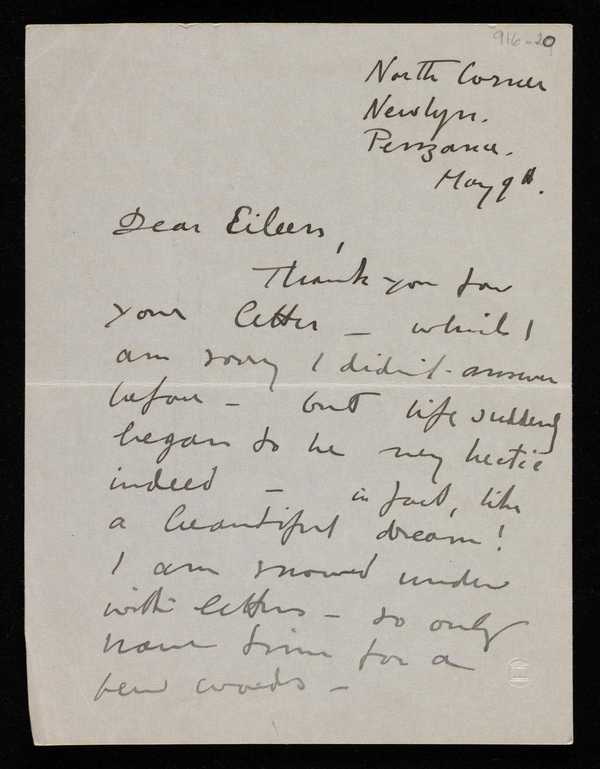 916-20
North Corner
Newlyn.
Penzance.
May 9th.
Dear Eileen,
Thank you for
your letter – which I
am sorry I didn't answer
before – but life suddenly
began to be very hectic
indeed – in fact, like
a beautiful dream!
I am snowed under
with letters – so only
have time for a
few words –